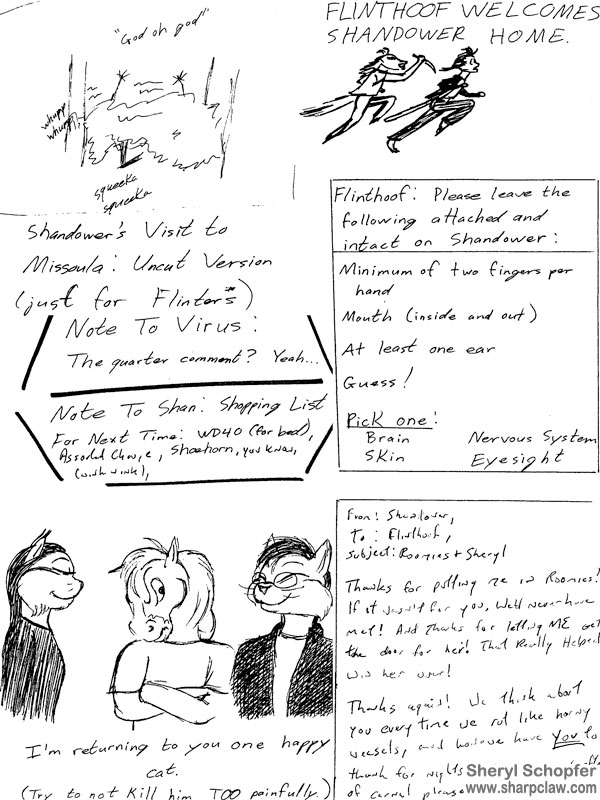 "God oh god"
whupp
whupp
squeeka
squeeka
FLINTHOOF WELCOMES
SHANDOWER HOME.
Shandower's Visit to
Missoula: Uncut Version
(just for Flinter's*)
Note To Virus:
The quarter comment? Yeah...
Note To Shan: Shopping List
For Next Time: WD40 (for bed),
Assorted Change, Shoehorn, you know,
(wink wink),
Flinthoof: Please leave the
following attached and
intact on Shandower:
Minimum of two fingers per
hand
Mouth (inside and out)
At least one ear
Guess!
Pick one:
Brain Nervous System
Skin Eyesight
I'm returning to you one happy
cat.
(Try to not kill him TOO painfully.)
From: Shandower,
To: Flinthoof,
Subject: Roomies + Sheryl
Thanks for putting me in Roomies!
If it wasn't for you, We'll never have
met! And Thanks for letting ME get
the door for her! That Really Helped
win her over!
Thanks again! We think about
you every time we rut like horny
weasels, and have you to
thank for nights
of carnal
Sheryl Schopfer
www.sharpclaw.com